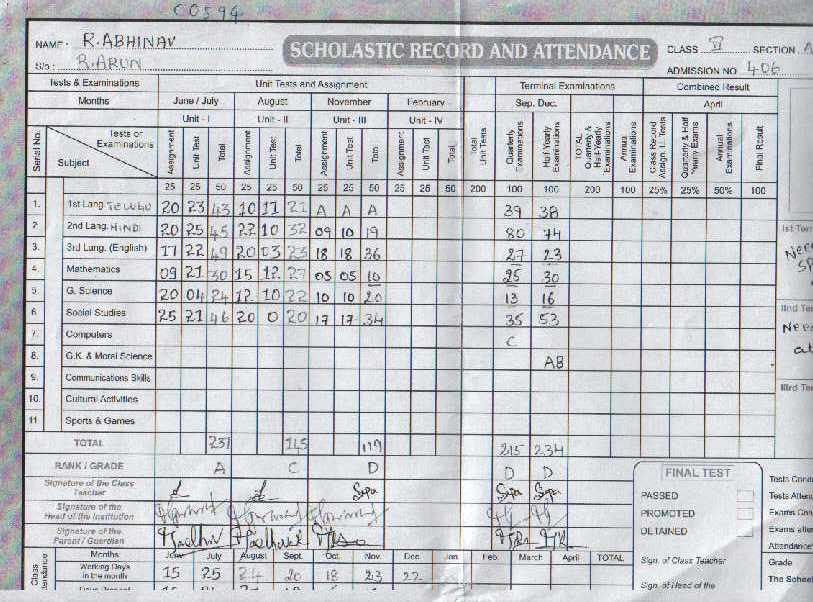 C0594
NAME : R. ABHINAV SCHOLASTIC RECORD AND ATTENDANCE CLASS VI SECTION A
S/o : R. ARUN ADMISSION NO 406
Tests & Examinations Unit Tests and Assignment Terminal Examinations Combined Result
Months June / July August November February Sep. Dec. April
Unit - I Unit - II Unit - III Unit - IV
Serial No. Tests or Examinations Subject Assignment Unit Test Total Assignment Unit Test Total Assignment Unit Test Total Assignment Unit Test Total Total Unit Tests Quarterly Examinations Half-Yearly Examinations TOTAL Quarterly & Half-Yearly Examinations Annual Examinations Class Record Assign. U. Tests Quarterly & Half Yearly Exams Annual Examinations Final Result
25 25 50 25 25 50 25 25 50 25 25 50 200 100 100 200 100 25% 25% 50% 100
1. 1st Lang. TELUGU 20 23 43 10 11 21 A A A 39 38
2 2nd Lang. HINDI 20 25 45 22 10 32 09 10 19 80 74
3. 3rd Lang. (English) 22 20 03 23 18 18 36 27 23
4. Mathematics 09 21 30 15 12 27 05 05 10 25 30
5. G. Science 20 04 24 12 10 22 10 10 20 13 16
6 Social Studies 25 21 46 20 0 20 17 17 34 35 53
7. Computers C
8. G.K. & Moral Science AB
9. Communications Skills
10. Cultural Activities
11 Sports & Games
TOTAL 237 145 119 215 234
RANK / GRADE A C D D D
Signature of the Class Teacher
Signature of the Head of the Institution
Signature of the Parent / Guardian
Class Attendance Months June July August Sept. Oct. Nov. Dec. Jan. Feb. March April TOTAL
Working Days in the month 15 25 24 20 18 23 22
FINAL TEST
PASSED
PROMOTED
DETAINED
Sign. of Class Teacher
Sign. of Head of the
Ist Ter
Need
IInd Ter
Nee
at
IIIrd Ter
Tests Cond
Tests Atten
Exams Con
Exams atte
Attendance
Grade
The School